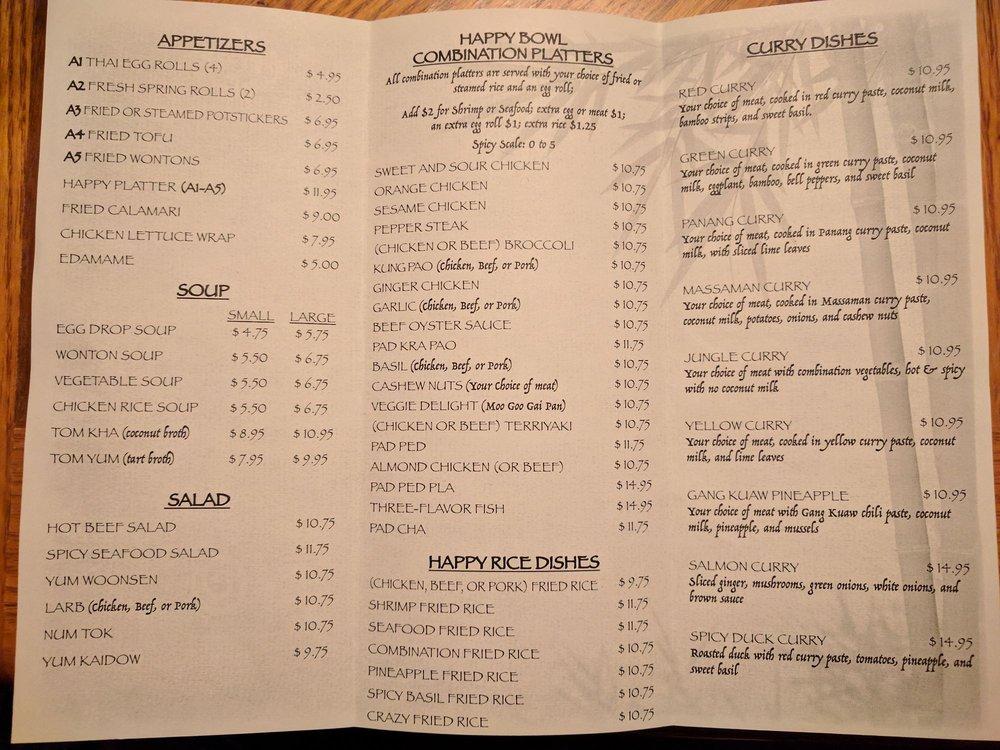 APPETIZERS
A1 THAI EGG ROLLS (4) $4.95
A2 FRESH SPRING ROLLS (2) $2.50
A3 FRIED OR STEAMED POTSTICKERS $6.95
A4 FRIED TOFU $6.95
A5 FRIED WONTONS $6.95
HAPPY PLATTER (A1-A5) $11.95
FRIED CALAMARI $9.00
CHICKEN LETTUCE WRAP $7.95
EDAMAME $5.00
SOUP
SMALL LARGE
EGG DROP SOUP $4.75 $5.75
WONTON SOUP $5.50 $6.75
VEGETABLE SOUP $5.50 $6.75
CHICKEN RICE SOUP $5.50 $6.75
TOM KHA (coconut broth) $8.95 $10.95
TOM YUM (tart broth) $7.95 $9.95
SALAD
HOT BEEF SALAD $10.75
SPICY SEAFOOD SALAD $11.75
YUM WOONSEN $10.75
LARB (Chicken, Beef, or Pork) $10.75
NUM TOK $10.75
YUM KAIDOW $9.75
HAPPY BOWL
COMBINATION PLATTERS
All combination platters are served with your choice of fried or
steamed rice and an egg roll;
Add $2 for Shrimp or Seafood; extra egg or meat $1;
an extra egg roll $1; extra rice $1.25
Spicy Scale: 0 to 5
SWEET AND SOUR CHICKEN $10.75
ORANGE CHICKEN $10.75
SESAME CHICKEN $10.75
PEPPER STEAK $10.75
(CHICKEN OR BEEF) BROCCOLI $10.75
KUNG PAO (Chicken, Beef, or Pork) $10.75
GINGER CHICKEN $10.75
GARLIC (Chicken, Beef, or Pork) $10.75
BEEF OYSTER SAUCE $10.75
PAD KRA PAO $11.75
BASIL (Chicken, Beef, or Pork) $10.75
CASHEW NUTS (Your Choice of meat) $10.75
VEGGIE DELIGHT (Moo Goo Gai Pan) $10.75
(CHICKEN OR BEEF) TERRIYAKI $10.75
PAD PED $11.75
ALMOND CHICKEN (OR BEEF) $10.75
PAD PED PLA $14.95
THREE-FLAVOR FISH $14.95
PAD CHA $11.75
HAPPY RICE DISHES
(CHICKEN, BEEF, OR PORK) FRIED RICE $9.75
SHRIMP FRIED RICE $11.75
SEAFOOD FRIED RICE $11.75
COMBINATION FRIED RICE $10.75
PINEAPPLE FRIED RICE $10.75
SPICY BASIL FRIED RICE $10.75
CRAZY FRIED RICE $10.75
CURRY DISHES
RED CURRY $10.95
Your choice of meat, cooked in red curry paste, coconut milk,
bamboo strips, and sweet basil.
GREEN CURRY $10.95
Your choice of meat, cooked in green curry paste, coconut
milk, eggplant, bamboo, bell peppers, and sweet basil
PANANG CURRY $10.95
Your choice of meat, cooked in Panang curry paste, coconut
milk, with sliced lime leaves
MASSAMAN CURRY $10.95
Your choice of meat, cooked in Massaman curry paste,
coconut milk, potatoes, onions, and cashew nuts
JUNGLE CURRY $10.95
Your choice of meat with combination vegetables, hot & spicy
with no coconut milk
YELLOW CURRY $10.95
Your choice of meat, cooked in yellow curry paste, coconut
milk, and lime leaves
GANG KUAW PINEAPPLE $10.95
Your choice of meat with Gang Kuaw chili paste, coconut
milk, pineapple, and mussels
SALMON CURRY $14.95
Sliced ginger, mushrooms, green onions, white onions, and
brown sauce
SPICY DUCK CURRY $14.95
Roasted duck with red curry paste, tomatoes, pineapple, and
sweet basil